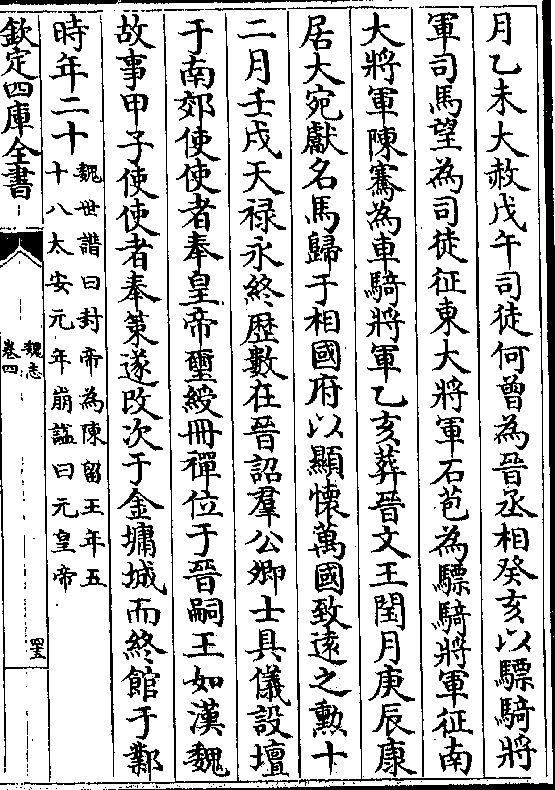 月乙未大赦戊午司徒何曾為晉丞相癸亥以驃騎將
軍司馬望為司徒征東大將軍石苞為驃騎將軍征南
大將軍陳騫為車騎將軍乙亥葬晉文王閏月庚辰康
居大宛獻名馬歸于相國府以顯懷萬國致逺之勲十
二月壬戌天禄永終歴數在晉詔羣公卿士具儀設壇
于南郊使使者奉皇帝璽綬冊禪位于晉嗣王如漢魏
故事甲子使使者奉策遂改次于金墉城而終館于鄴
時年二十
魏世譜曰封帝為陳留王年五
十八太安元年崩諡曰元皇帝
欽定四庫全書
魏志
卷四